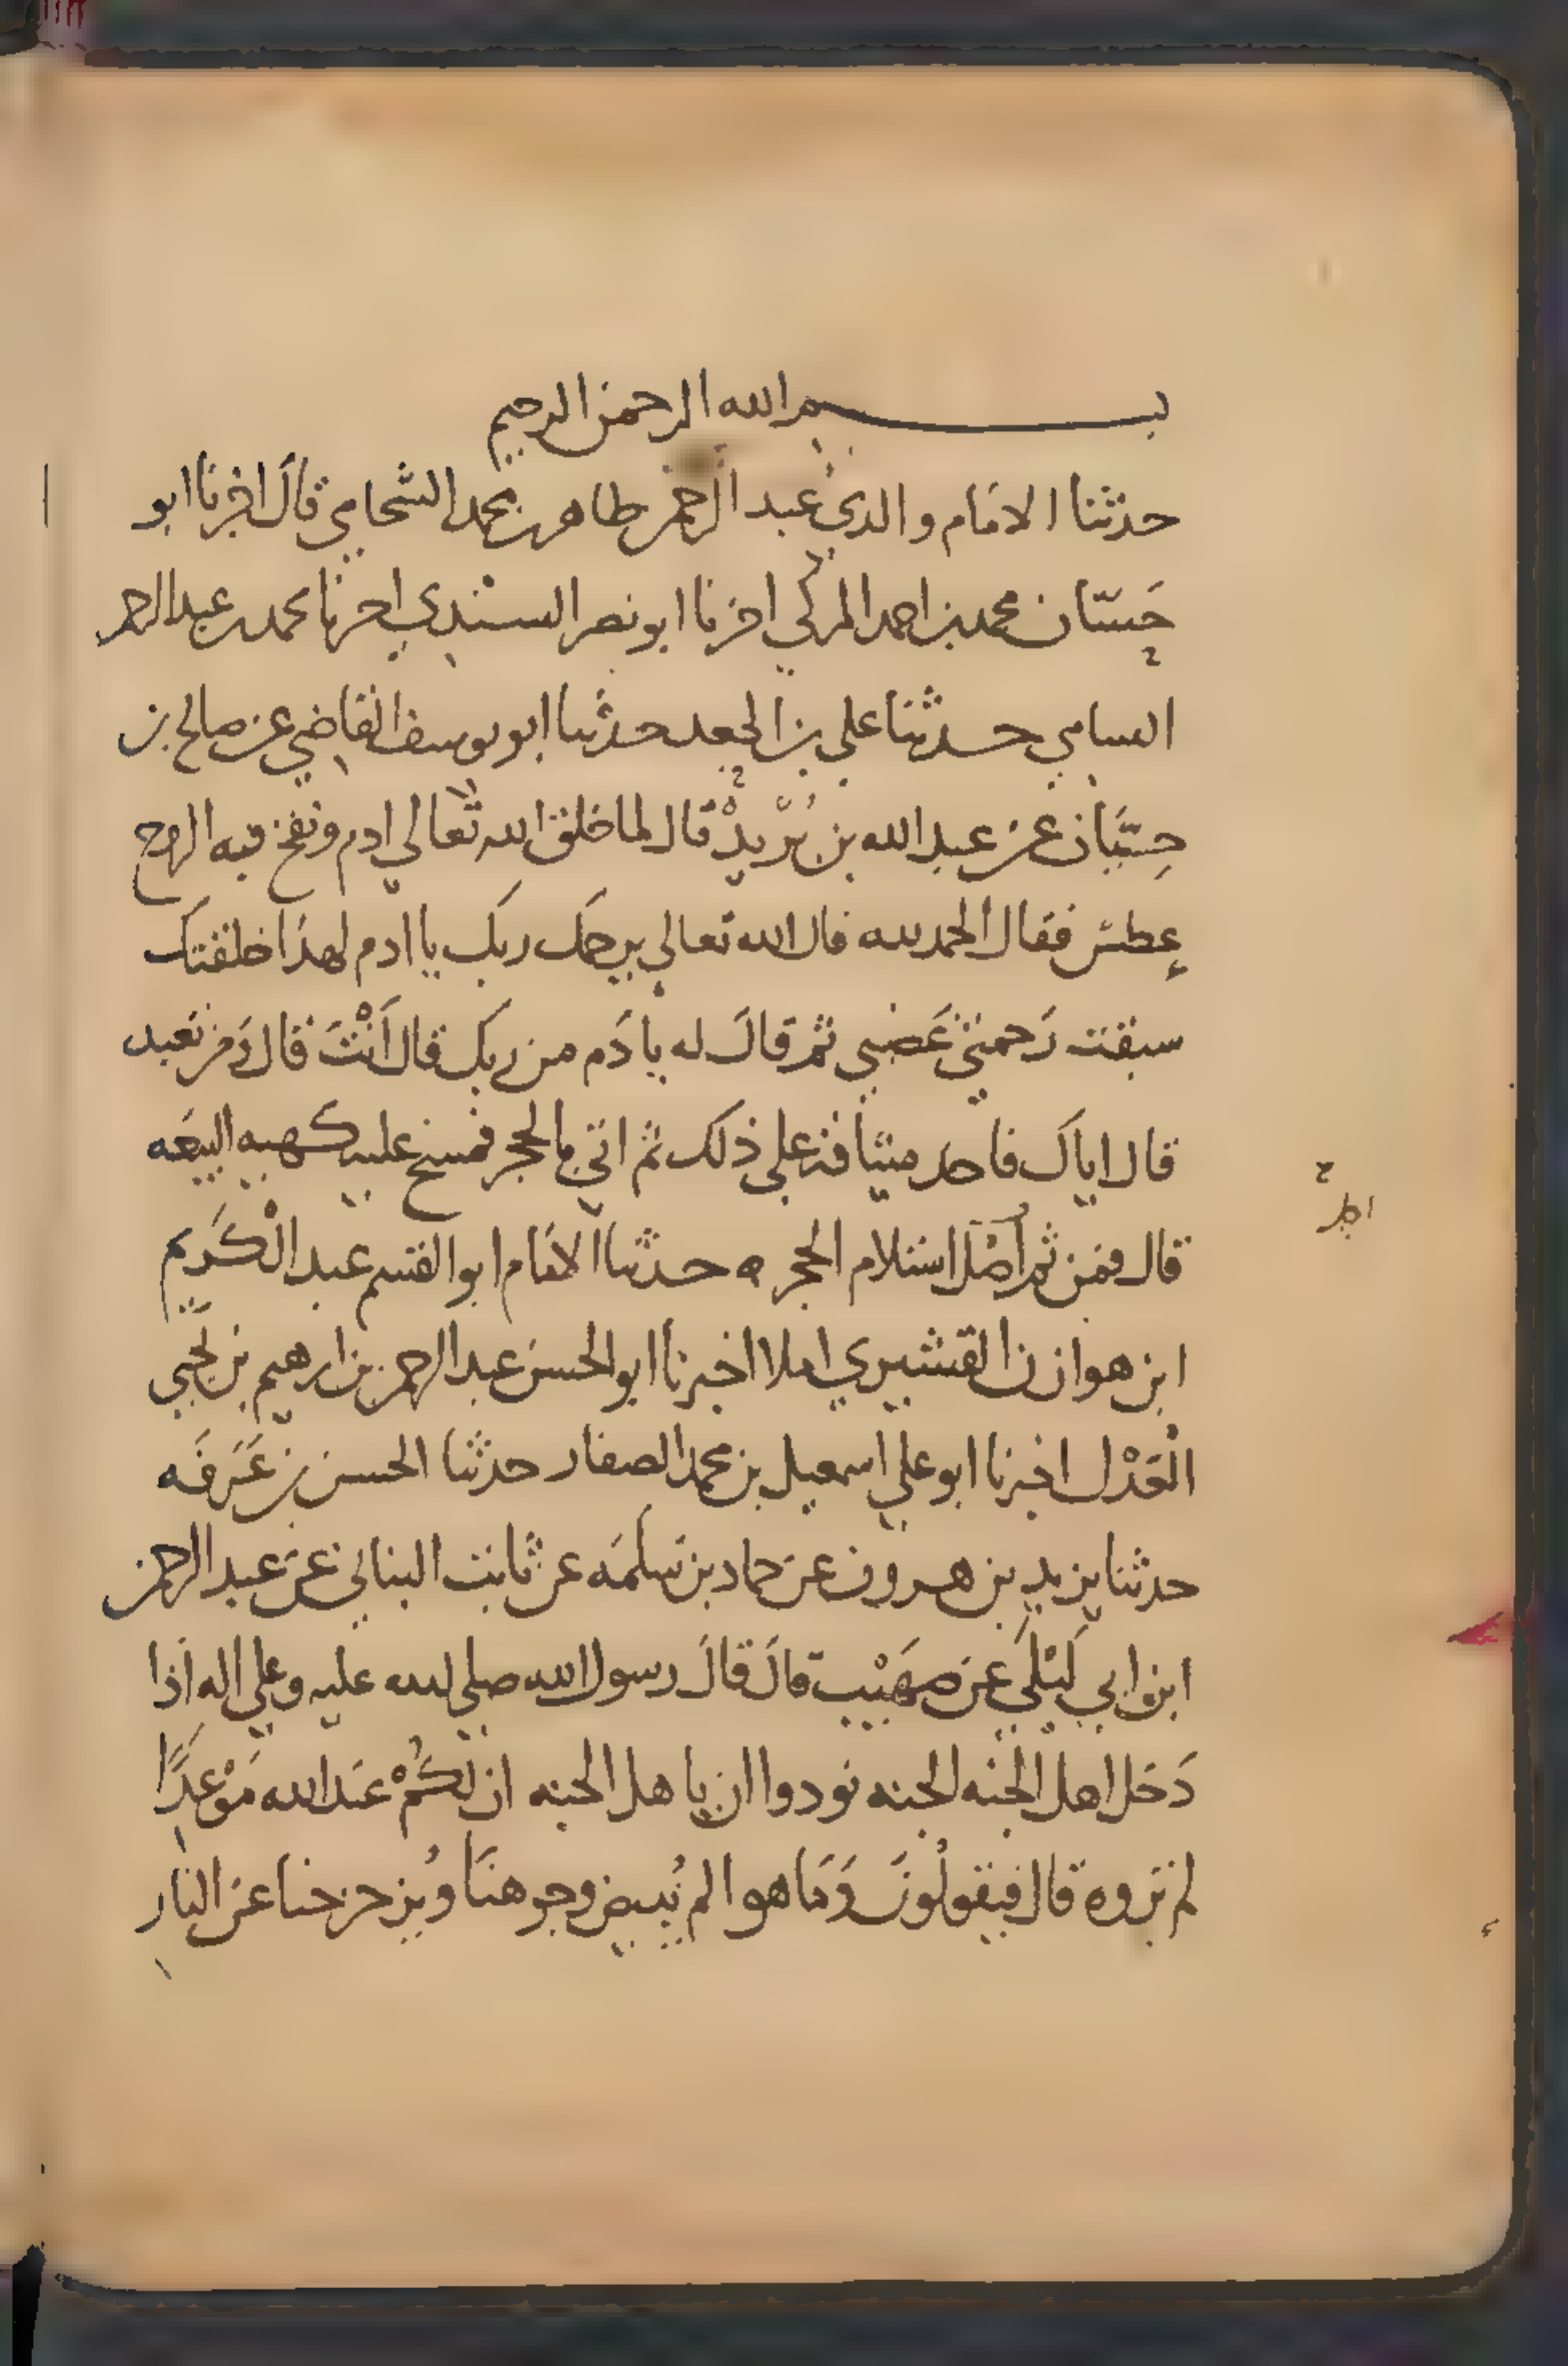 بسم الله الرحمن الرحيم
حدثنا الامام والدي عبد الرحمن طاهر بن محمد الشحامي قال اخبرنا ابو
حسان محمد بن احمد المزكي اخبرنا ابو نصر السندي اخبرنا محمد بن عبد الرحمن
السامي حدثنا علي بن الجعد حدثنا ابو يوسف القاضي عن صالح بن
حيان عن عبد الله بن بريد قال لما خلق الله تعالى ادم ونفخ فيه الروح
عطس فقال الحمد لله قال الله تعالي يرحمك ربك يا ادم لهذا خلقتك
سبقت رحمتي غضبي ثم قال له يا دم من ربك قال انت قال ومن تعبد
قال اياك فاخذ ميثاقه علي ذلك ثم اتي بالحجر فمسح عليه كهيه البيعه
قال فمن ثم اصل استلام الحجر ه حدثنا الامام ابو القسم عبد الكريم
ابن هوازن القشيري املا اخبرنا ابو الحسن عبد الرحمن بن ابرهيم بن يحيي
العدل اخبرنا ابو علي اسمعيل بن محمد الصفار حدثنا الحسن بن عرفه
حدثنا يزيد بن هرون عن حماد بن سلمه عن ثابت البناني عن عبد الرحمن
ابن ابي ليلي عن صهيب قال قال رسول الله صلي الله عليه وعلي اله اذا
دخل اهل الجنه الجنه نودوا ان يا هل الجنه ان لكم عند الله موعدا
لم تروه قال فيقولون وما هو الم يبيض وجوهنا ويزحزحنا عن النار